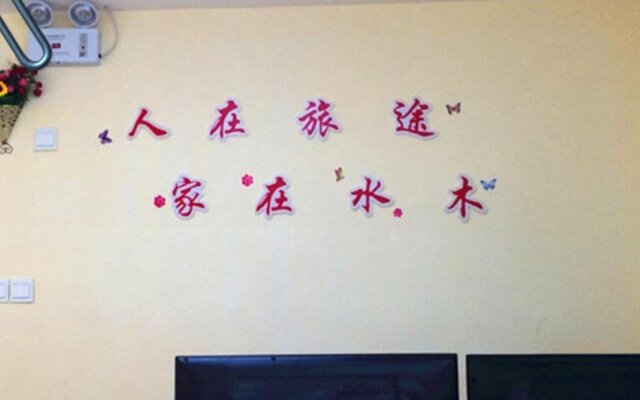 人在旅途
家在水木